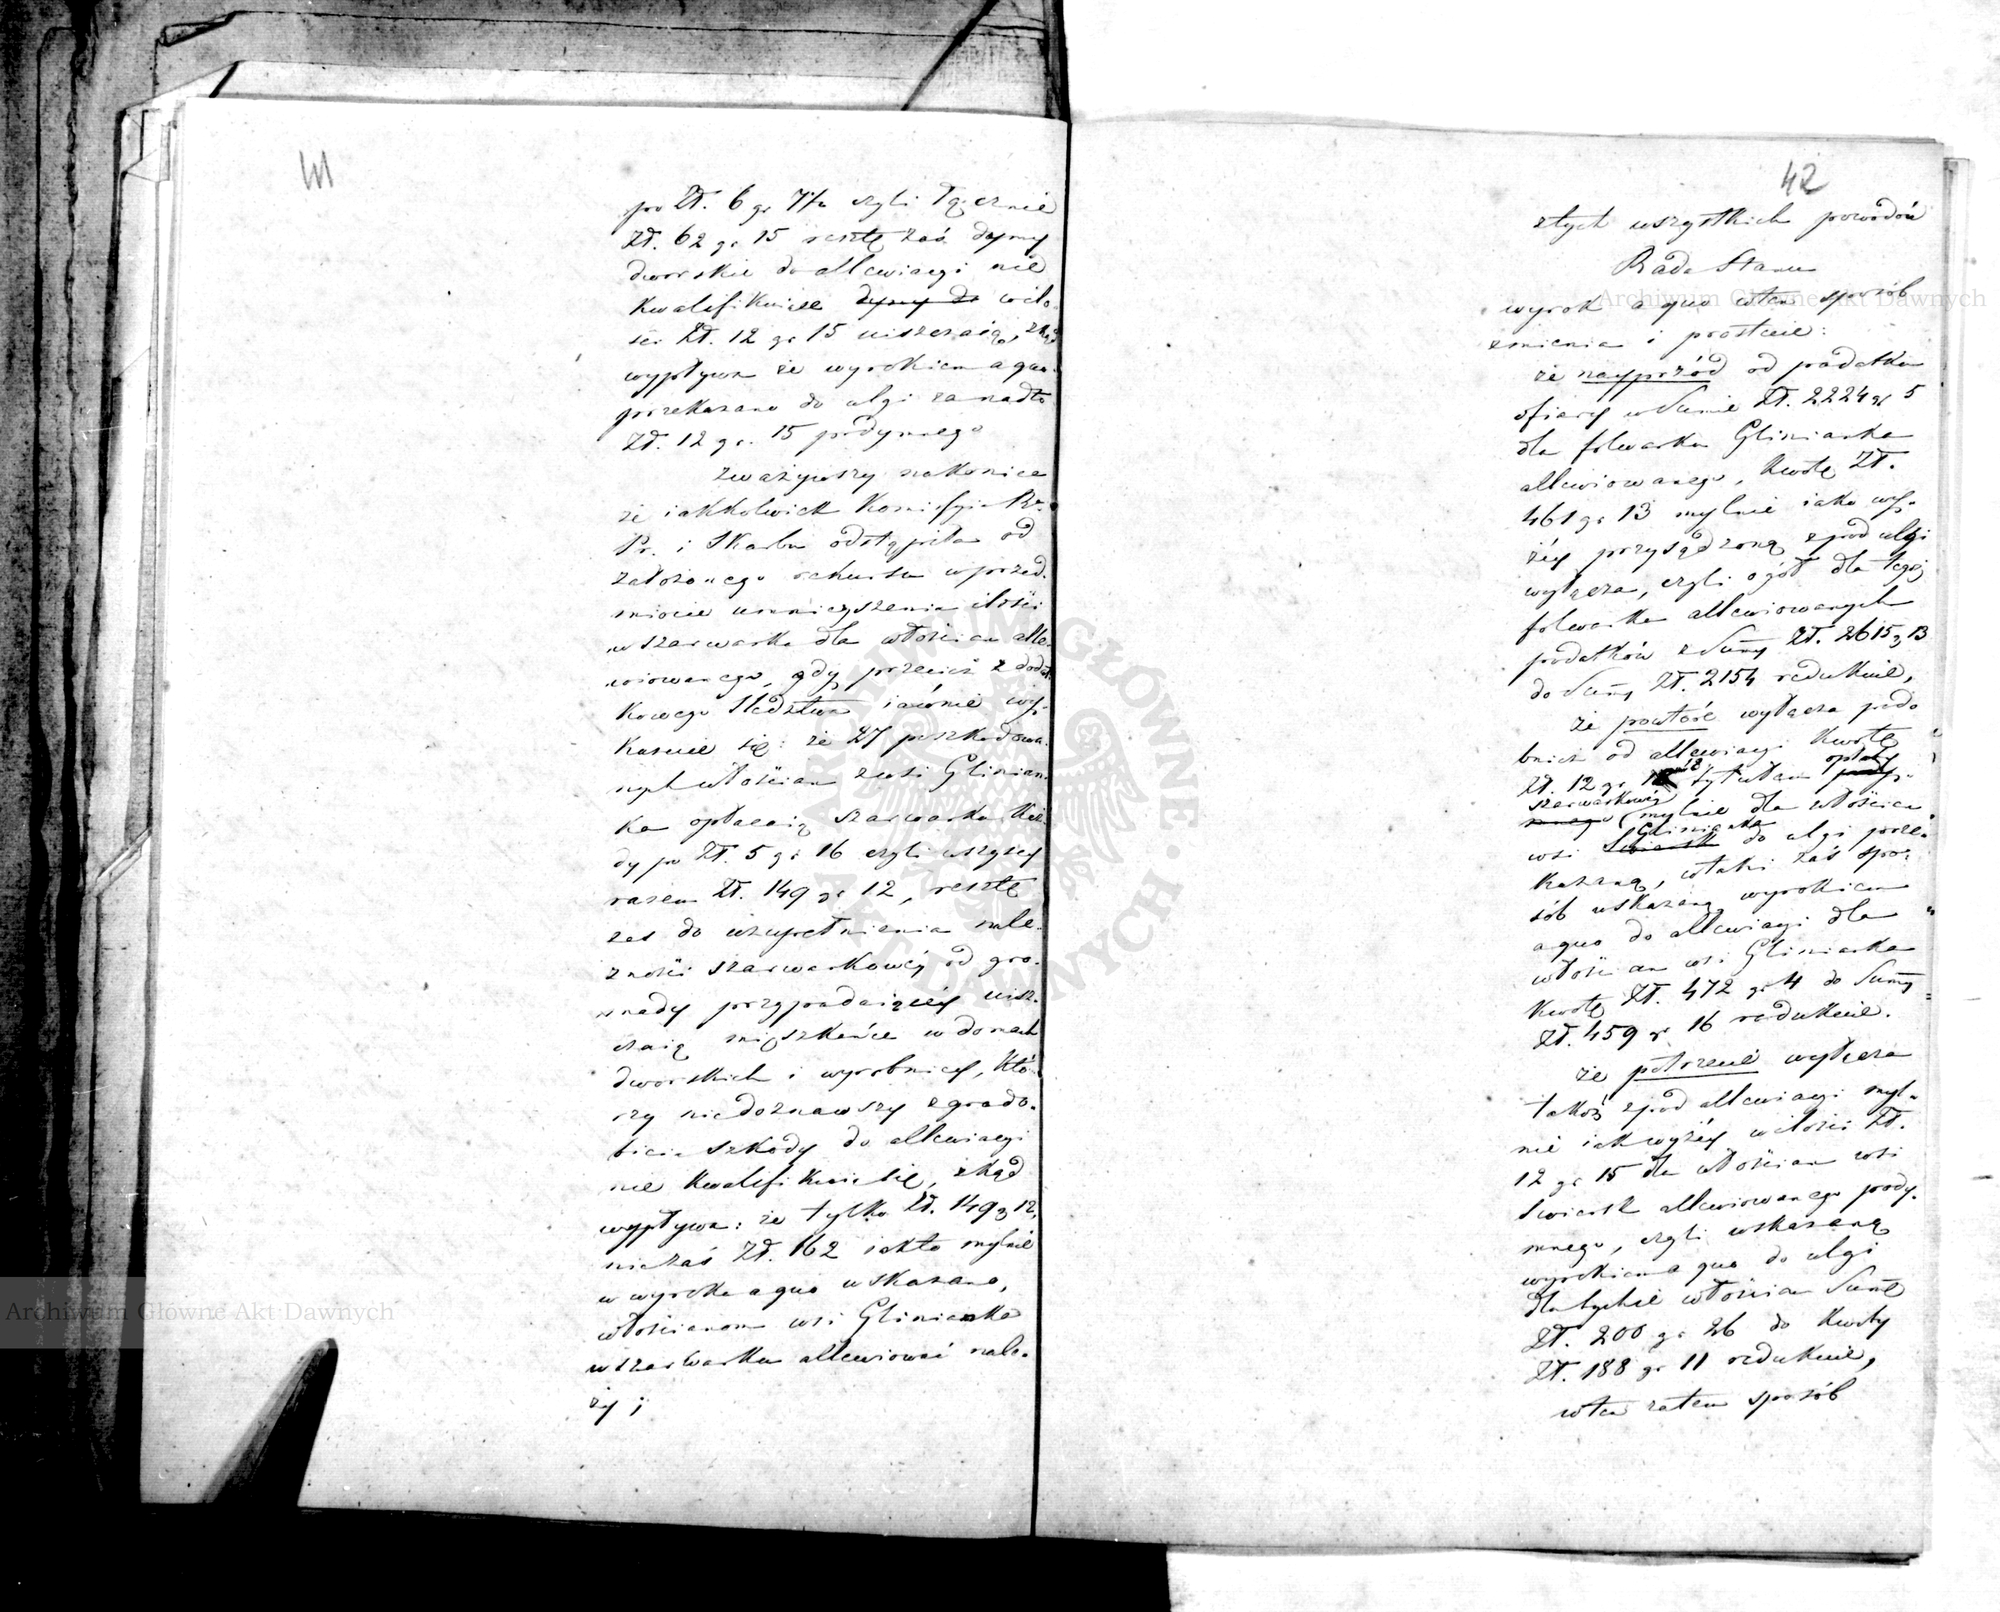 po Zł. 6 gr 7½ czyli łącznie
Zł. 62 gr 15 resztę zaś dymy
dworskie do allewiacyi nie
kwalifikuiące dymy do w ilo-
ści Zł. 12 gr 15 uiszczaią, zkąd
wypływa że wyrokiem a quo
przekazano do ulgi zanadto
Zł. 12 gr. 15 podymnego
zważywszy nakoniec
że iakkolwiek Kommissyia Rz.
Pr. i Skarbu odstąpiła od
założonego rekursu w przed-
miocie umnieyszenia ilości
w szarwarku dla włościan alle-
wiowanego, gdy przecież z dodat-
kowego śledztwa iawnie wy-
kazuie się: że 27 poszkodowa-
nych włościan z wsi Glinian-
ka opłacaią szarwarku każ-
dy po Zł. 5 gr 16 czyli wszyscy
razem Zł. 149 gr 12, resztę
zaś do uzupełnienia nale-
żności szarwarkowéy od gro-
mady przypadaiącéy uisz-
czaią mięszkańce w domach
dworskich i wyrobnicy, któ-
rzy niedoznawszy z grado-
bicia szkody do allewiacyi
nie kwalifikuią się, zkąd
wypływa: że tylko Zł. 149 g 12,
nie zaś Zł. 162 iak to mylnie
w wyroku a quo wskazano,
włościanom wsi Glinianka
w szarwarku allewiować nale-
ży;
42
z tych wszystkich powodów
Rada Stanu
wyrok a quo w ten sposób
zmienia i prostuie:
że nayprzód od podatku
ofiary w Summie Zł. 2224 gr 5
dla folwarku Glinianka
allewiowanego, kwotę Zł.
461 gr 13 mylnie iako wy-
żéy przysądzoną z pod ulgi
wyłącza, czyli ogół dla tegoż
folwarku allewiowanych
podatków z Summy Zł. 2615 g 13
do Summy Zł. 2154 redukuie,
że powtóre wyłącza podo
bnież od allewiacyi kwotę
Zł. 12 gr 18 tytułem opłaty
szarwarkowéy mylnie dla włościan
wsi Glinianka do ulgi prze-
kazaną, w taki zaś spo-
sób wskazaną wyrokiem
a quo do allewiacyi dla
włościan wsi Glinianka
kwotę Zł. 472 gr 4 do Summy
Zł. 459 gr 16 redukuie.
że potrzecie wyłącza
także z pod allewiacyi myl-
nie iak wyżéy w ilości Zł.
12 gr 15 dla włościan wsi
Swiersk allewiowanego pody-
mnego, czyli wskazaną
wyrokiem a quo do ulgi
dla tychże włościan Summę
Zł. 200 gr 26 do kwoty
Zł. 188 gr 11 redukuie,
w ten zatem sposób
Archiwum Główne Akt Dawnych
Archiwum Główne Akt Dawnych
ARCHIWUM GŁÓWNE AKT DAWNYCH